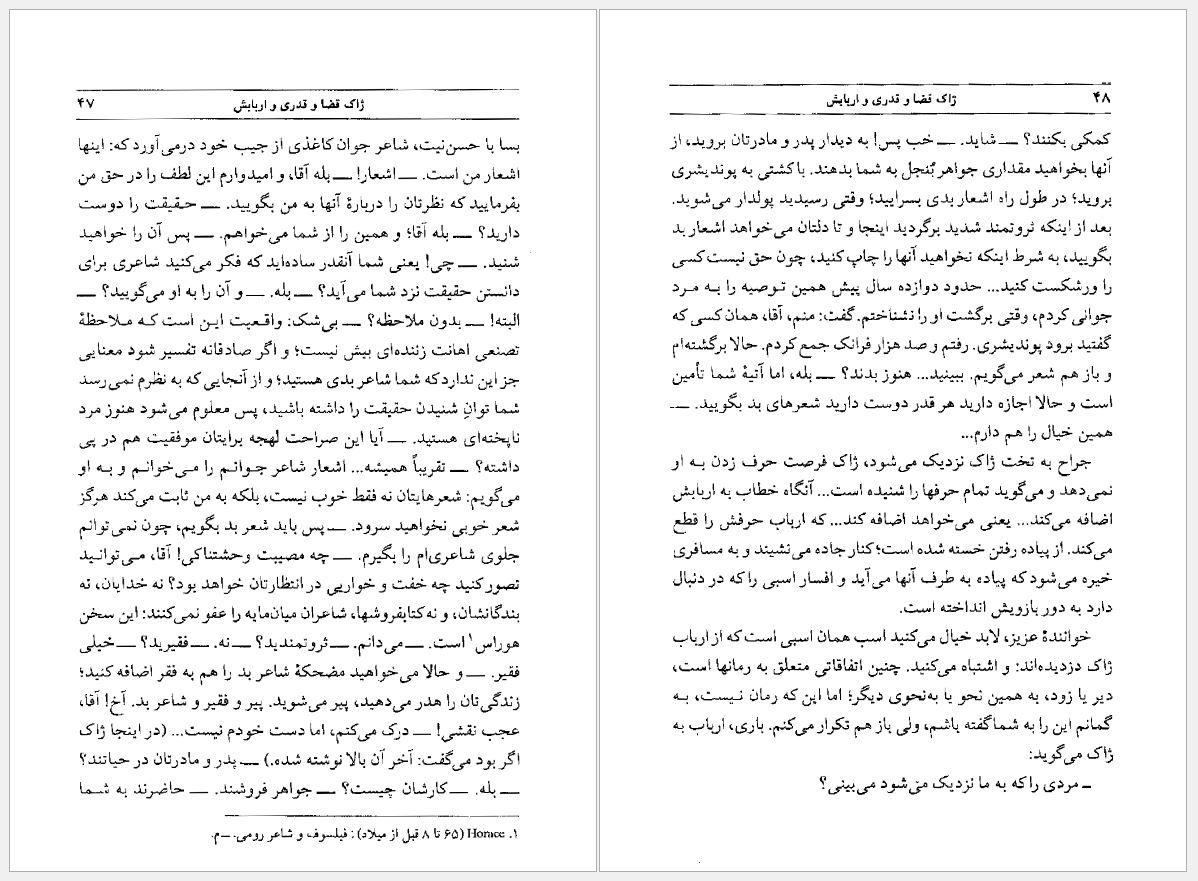 ژاک قضا و قدری و اربابش ۴۷
بسا با حسن‌نیت، شاعر جوان کاغذی از جیب خود درمی‌آورد که: اینها
اشعار من است. ــ اشعار! ــ بله آقا، و امیدوارم این لطف را در حق من
بفرمایید که نظرتان را دربارهٔ آنها به من بگویید. ــ حقیقت را دوست
دارید؟ ــ بله آقا؛ و همین را از شما می‌خواهم. ــ پس آن را خواهید
شنید. ــ چی! یعنی شما آنقدر ساده‌اید که فکر می‌کنید شاعری برای
دانستن حقیقت نزد شما می‌آید؟ ــ بله. ــ و آن را به او می‌گویید؟ ــ
البته! ــ بدون ملاحظه؟ ــ بی‌شک: واقعیت این است که ملاحظهٔ
تصنعی اهانت زننده‌ای بیش نیست؛ و اگر صادقانه تفسیر شود معنایی
جز این ندارد که شما شاعر بدی هستید؛ و از آنجایی که به نظرم نمی‌رسد
شما توانِ شنیدن حقیقت را داشته باشید، پس معلوم می‌شود هنوز مرد
ناپخته‌ای هستید. ــ آیا این صراحت لهجه برایتان موفقیت هم در پی
داشته؟ ــ تقریباً همیشه... اشعار شاعر جوانم را می‌خوانم و به او
می‌گویم: شعرهایتان نه فقط خوب نیست، بلکه به من ثابت می‌کند هرگز
شعر خوبی نخواهید سرود. ــ پس باید شعر بد بگویم، چون نمی‌توانم
جلوی شاعری‌ام را بگیرم. ــ چه مصیبت وحشتناکی! آقا، می‌توانید
تصور کنید چه خفت و خواریی در انتظارتان خواهد بود؟ نه خدایان، نه
بندگانشان، و نه کتابفروشها، شاعران میان‌مایه را عفو نمی‌کنند: این سخن
هوراس۱ است. ــ می‌دانم. ــ ثروتمندید؟ ــ نه. ــ فقیرید؟ ــ خیلی
فقیر. ــ و حالا می‌خواهید مضحکهٔ شاعر بد را هم به فقر اضافه کنید؛
زندگی‌تان را هدر می‌دهید، پیر می‌شوید. پیر و فقیر و شاعر بد. آخ! آقا،
عجب نقشی! ــ درک می‌کنم، اما دست خودم نیست... (در اینجا ژاک
اگر بود می‌گفت: آخر آن بالا نوشته شده.) ــ پدر و مادرتان در حیاتند؟
ــ بله. ــ کارشان چیست؟ ــ جواهر فروشند. ــ حاضرند به شما
۱. Horace (۶۵ تا ۸ قبل از میلاد): فیلسوف و شاعر رومی. ــ م.
۴۸ ژاک قضا و قدری و اربابش
کمکی بکنند؟ ــ شاید. ــ خب پس! به دیدار پدر و مادرتان بروید، از
آنها بخواهید مقداری جواهر بُنجل به شما بدهند. با کشتی به پوندیشری
بروید؛ در طول راه اشعار بدی بسرایید؛ وقتی رسیدید پولدار می‌شوید.
بعد از اینکه ثروتمند شدید برگردید اینجا و تا دلتان می‌خواهد اشعار بد
بگویید، به شرط اینکه نخواهید آنها را چاپ کنید، چون حق نیست کسی
را ورشکست کنید... حدود دوازده سال پیش همین توصیه را به مرد
جوانی کردم، وقتی برگشت او را نشناختم. گفت: منم، آقا، همان کسی که
گفتید برود پوندیشری. رفتم و صد هزار فرانک جمع کردم. حالا برگشته‌ام
و باز هم شعر می‌گویم. ببینید... هنوز بدند؟ ــ بله، اما آتیهٔ شما تأمین
است و حالا اجازه دارید هر قدر دوست دارید شعرهای بد بگویید. ــ
همین خیال را هم دارم...
جراح به تخت ژاک نزدیک می‌شود، ژاک فرصت حرف زدن به او
نمی‌دهد و می‌گوید تمام حرفها را شنیده است... آنگاه خطاب به اربابش
اضافه می‌کند... یعنی می‌خواهد اضافه کند... که ارباب حرفش را قطع
می‌کند. از پیاده رفتن خسته شده است؛ کنار جاده می‌نشیند و به مسافری
خیره می‌شود که پیاده به طرف آنها می‌آید و افسار اسبی را که در دنبال
دارد به دور بازویش انداخته است.
خوانندهٔ عزیز، لابد خیال می‌کنید اسب همان اسبی است که از ارباب
ژاک دزدیده‌اند: و اشتباه می‌کنید. چنین اتفاقاتی متعلق به رمانها است،
دیر یا زود، به همین نحو یا به‌نحوی دیگر؛ اما این که رمان نیست، به
گمانم این را به شما گفته باشم، ولی باز هم تکرار می‌کنم. باری، ارباب به
ژاک می‌گوید:
ــ مردی را که به ما نزدیک می‌شود می‌بینی؟